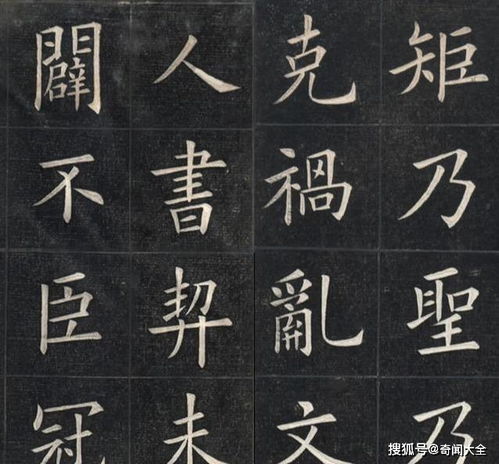 矩乃聖乃
克禍亂文
人書契未
闢不臣冠
搜狐号@奇闻大全